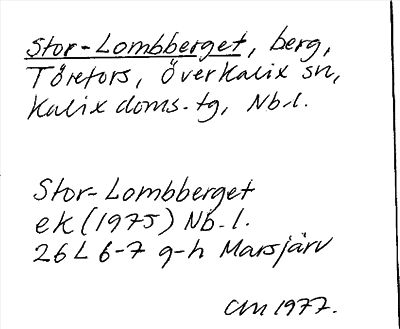 Stor-Lombberget, berg,
Törefors, Överkalix sn,
Kalix doms.tg, Nb.l.
Stor-Lombberget
ek (1975) Nb.l.
26L 6-7 g-h Marsjärv
CM 1977.